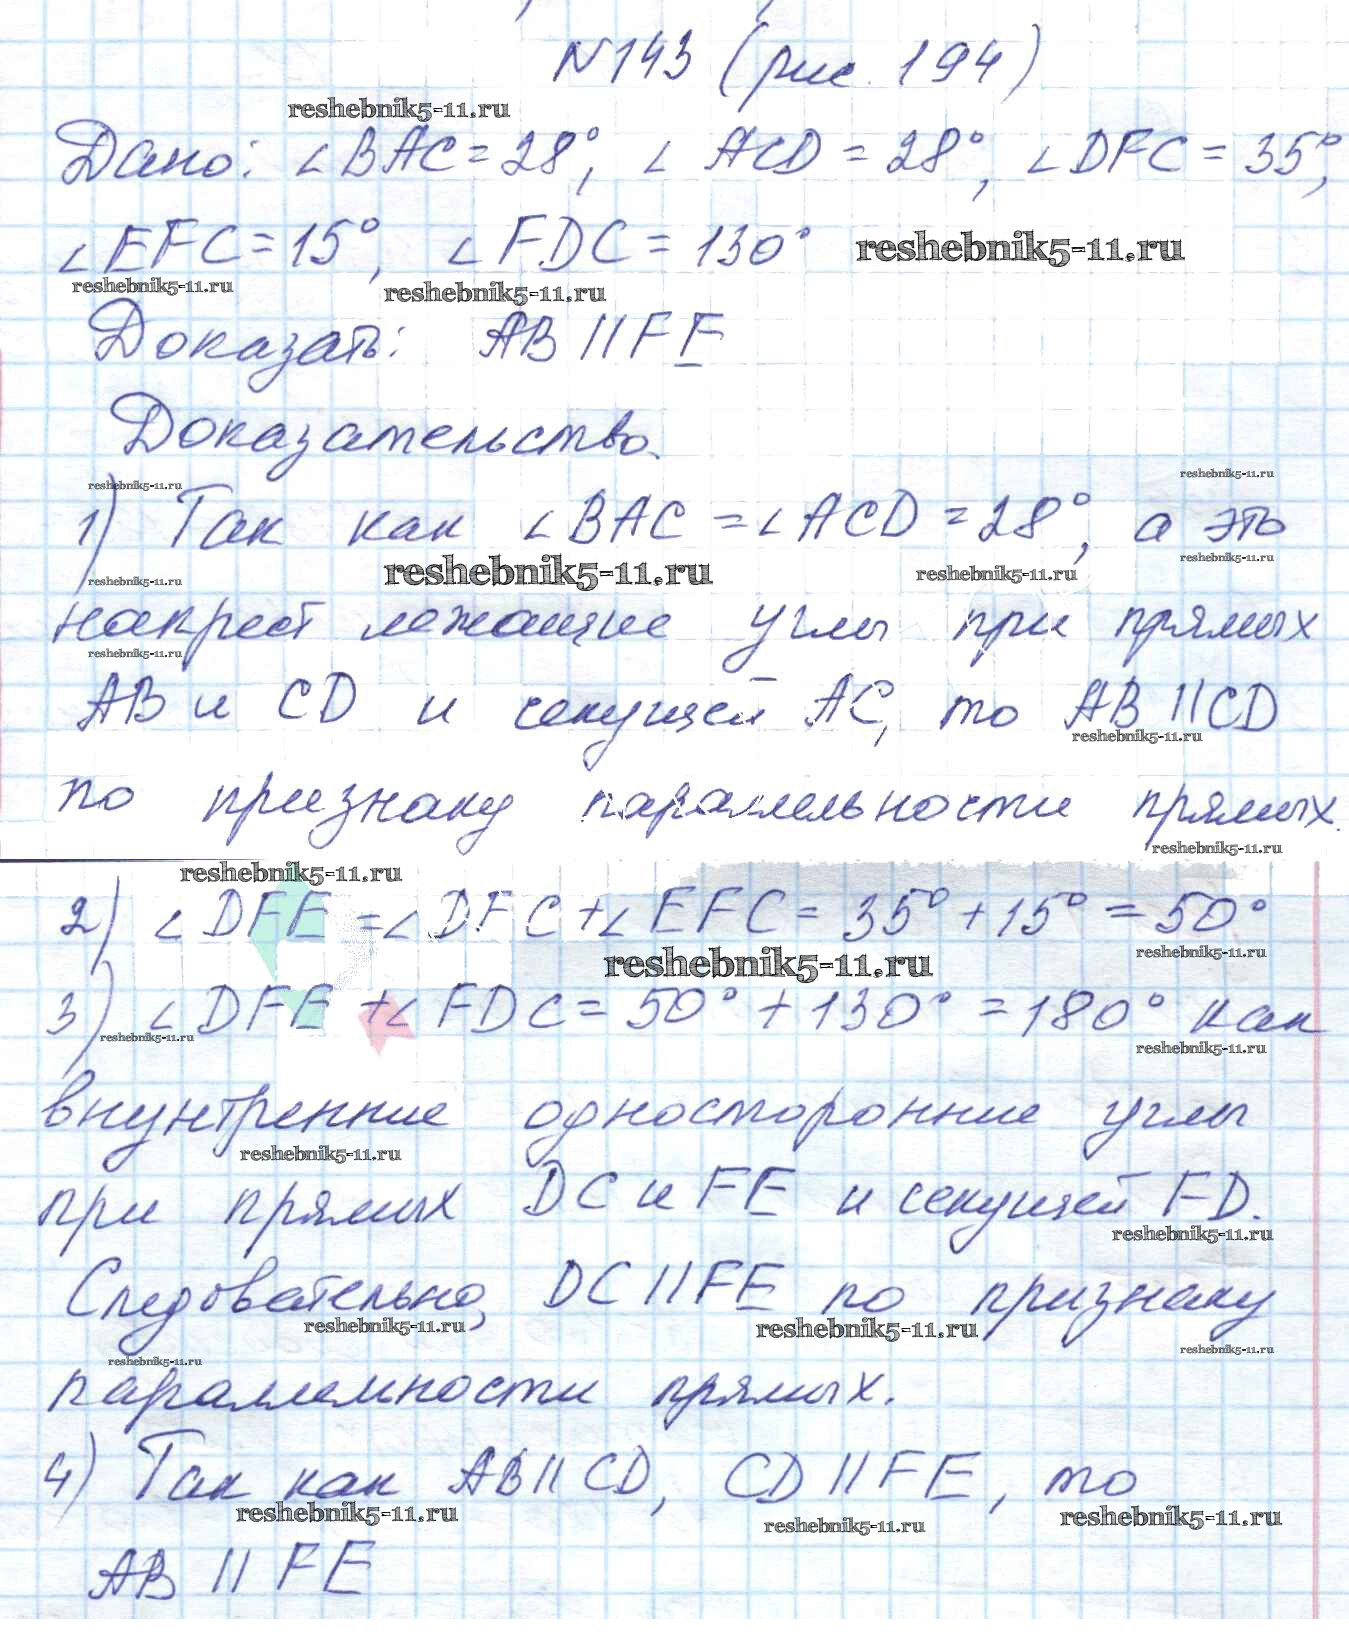 №143 (рис. 194)
reshebnik5-11.ru
Дано: ∠BAC = 28°, ∠ACD = 28°, ∠DFC = 35°,
∠EFC = 15°, ∠FDC = 130° reshebnik5-11.ru
reshebnik5-11.ru reshebnik5-11.ru
Доказать: AB || FE
Доказательство.
reshebnik5-11.ru reshebnik5-11.ru
1) Так как ∠BAC = ∠ACD = 28°, а это
reshebnik5-11.ru reshebnik5-11.ru reshebnik5-11.ru reshebnik5-11.ru
накрест лежащие углы при прямых
reshebnik5-11.ru
AB и CD и секущей AC, то AB || CD
reshebnik5-11.ru
по признаку параллельности прямых.
reshebnik5-11.ru
reshebnik5-11.ru
2) ∠DFE = ∠DFC + ∠EFC = 35° + 15° = 50°
reshebnik5-11.ru reshebnik5-11.ru
3) ∠DFE + ∠FDC = 50° + 130° = 180° как
reshebnik5-11.ru reshebnik5-11.ru
внутренние односторонние углы
reshebnik5-11.ru
при прямых DC и FE и секущей FD.
reshebnik5-11.ru
Следовательно, DC || FE по признаку
reshebnik5-11.ru reshebnik5-11.ru reshebnik5-11.ru
reshebnik5-11.ru
параллельности прямых.
4) Так как AB || CD, CD || FE, то
reshebnik5-11.ru reshebnik5-11.ru reshebnik5-11.ru
AB || FE